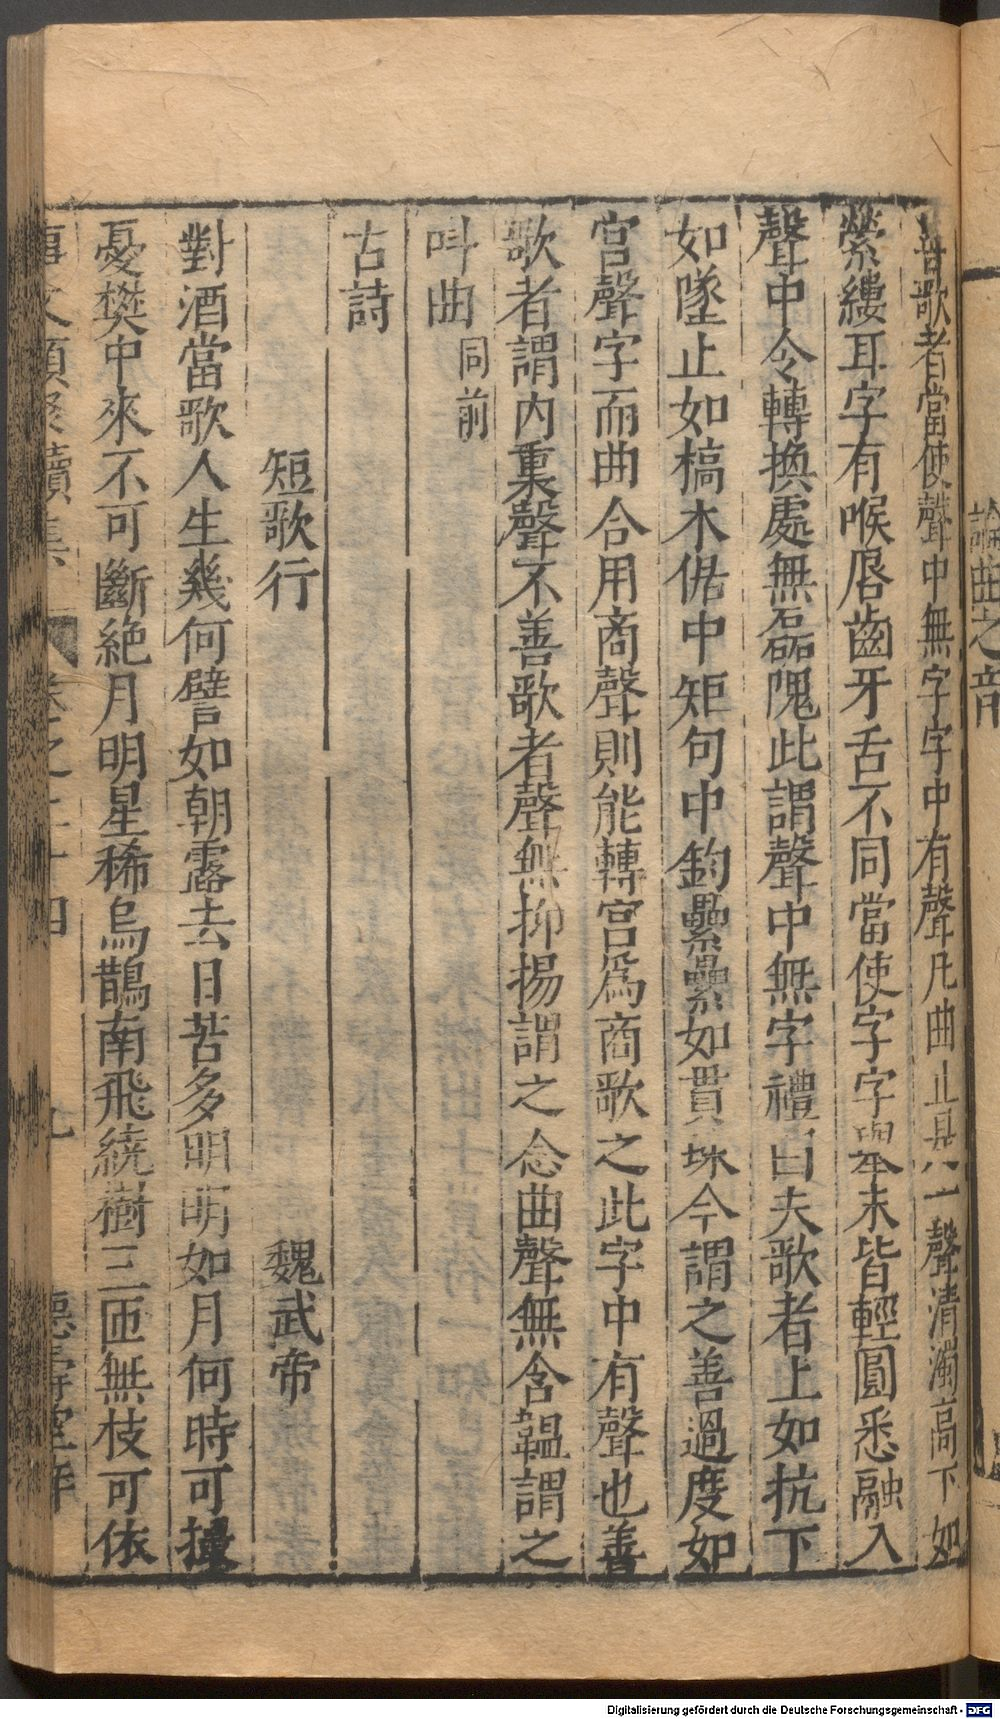 論曲之音
昔歌者當使聲中無字字中有聲凡曲止是一聲清濁高下如
縈縷耳字有喉唇齒牙舌不同當使字字舉末皆輕圓悉融入
聲中令轉換處無磊隗此謂聲中無字禮曰夫歌者上如抗下
如墜止如槁木倨中矩句中鈎纍纍如貫珠今謂之善過度如
宮聲字而曲合用商聲則能轉宮爲商歌之此字中有聲也善
歌者謂內裏聲不善歌者聲無抑揚謂之念曲聲無含韞謂之
叫曲 同前
古詩
短歌行 魏武帝
對酒當歌人生幾何譬如朝露去日苦多明明如月何時可撮
憂從中來不可斷絶月明星稀烏鵲南飛繞樹三匝無枝可依
事文類聚續集 卷之二十四 九 德壽堂梓
Digitalisierung gefördert durch die Deutsche Forschungsgemeinschaft - DFG